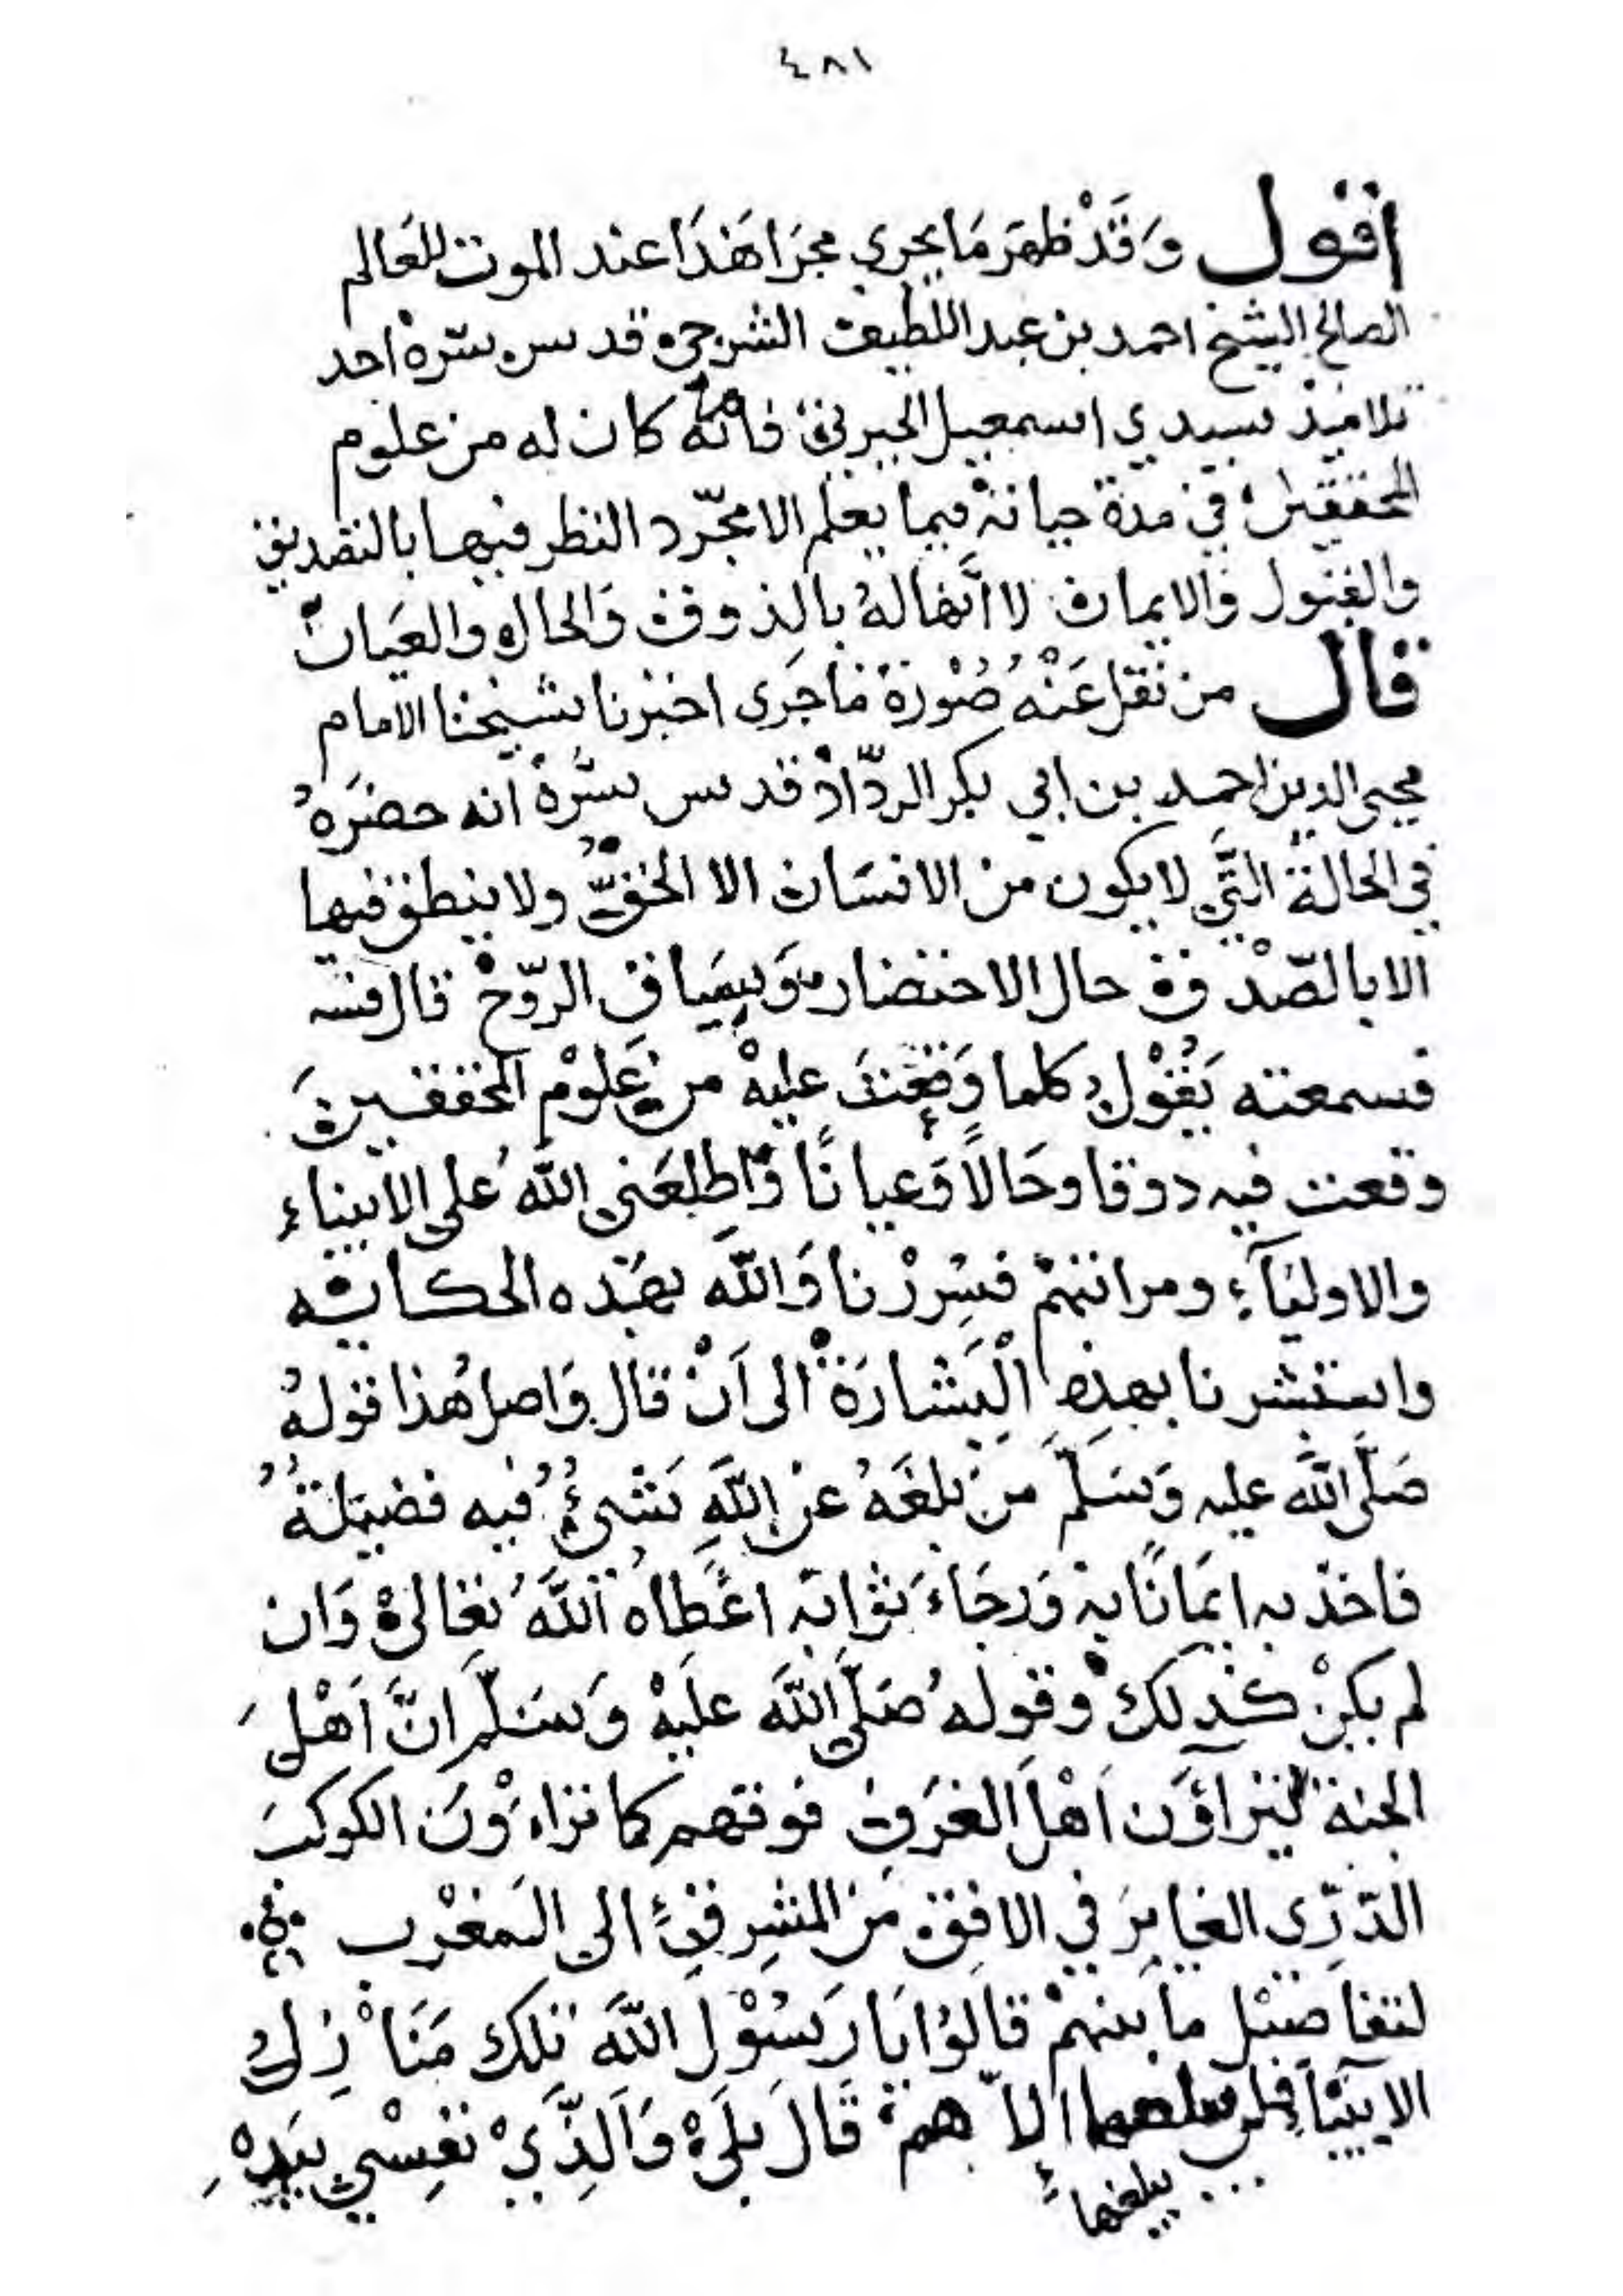 ٤٨١
اقول وَقَدْ ظهَرَ مَا يجري مجرَا هَذَا عند الموت للعَالم
الصالح الشيخ احمد بن عبد اللطيف الشرجي قدس سرّهْ احد
تلاميذ سيدي اسمعيل الجبرتي فانه كان له من علوم
المحققين في مدة حياته فيما يعلم الا مجّرد النظر فيها بالتصديق
والقبول والايمان لا انَّها لهُ بالذوق وَالحال والعيَان
قال من نقل عَنْهُ صُوْرَة مَا جَرى اخبرنا شيخنا الامام
محيى الدين احمد بن ابي بكر الردّادْ قدس سّرهْ انه حضَرَهُ
في الحالة التَّي لا يكون من الانسَان الا الحَقّ ولا ينطق فيها
الا بالصّدْق في حال الاحتضار وَسيَاق الرّوح قال
فسمعته يَقُوْل كلما وَقفتَ عليهْ من عَلوْم المحققين
وقعت فيه ذوقا وحَالًا وَعيانًا وَاطلعَنى اللهُ على الانبياء
والاوليَآء ومراتبهمْ فسِررْنا وَاللهَ بهَذه الحكايه
واستبشرنا بهذِه الْبَشارَة الى اَنْ قال وَاصل هَذا قولهُ
صَلَّى اللهَ عليه وَسَلّم منَ بلغَهُ عن اللهِ شَىءُ فيه فضيلةُ
فاخذ به ايمَانًا به وَرجَاءَ ثوابه اعْطاهُ اللهَُ تعَالىْ وَان
لم يكنْ كذلك وقوله صَلَّى اللهَ علَيهْ وَسَلّم انَّ اَهْلَ
الجنة ليتراؤن اَهْل الغرَف فوقهم كما تراءوْنَ الكوكبَ
الدّرّي الغابرَ في الافق مَن المشرِق الى المغرْب
لتفاضل ما بينهمْ قالوُا يَا رَسُوْل اللهَ تلك مَنَازِلُ
الانبيَآء فلن الاّ هم قَال بلَىْ وَالذَّيْ نفسْي بيَدِهْ
يبلغها